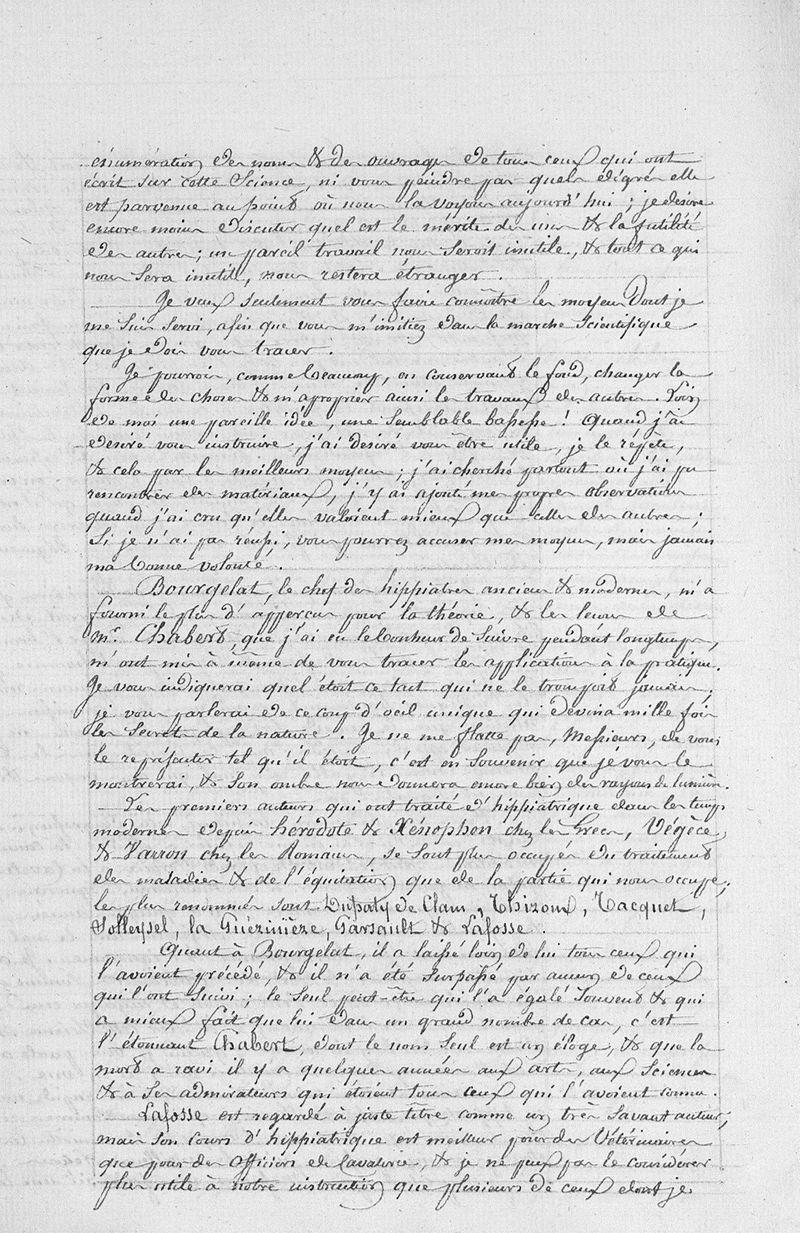 énumération des noms & des ouvrages de tous ceux qui ont
écrit sur cette Science, ni vous peindre par quels dégrés elle
est parvenue au point où nous la voyons aujourd'hui ; je désire
encore moins discuter quel est le mérite des uns & la futilité
des autres ; un pareil travail nous Seroit inutile, & tout ce qui
nous Sera inutil, nous restera étranger.
Je veux Seulement vous faire connoître les moyens Dont je
me Suis Servi, afin que vous m'imitiez dans la marche Scientifique
que je dois vous tracer.
Je pourrois, comme beaucoup, en conservant le fond, changer la
forme des choses & m'aproprier ainsi les travaux des autres. Loin
de moi une pareille idée, une Semblable bassesse ! Quand j'ai
desiré vous instruire, j'ai desiré vous être utile, je le répéte,
& cela par les meilleurs moyens ; j'ai cherché partout où j'ai pu
rencontrer des matériaux, j'y ai ajouté mes propres observations
quand j'ai cru qu'elles valoient mieux que celles des autres ;
Si je n'ai pas réussi, vous pourrez accuser mes moyens, mais jamais
ma bonne volonté.
Bourgelat, le chef des hippiatres anciens & modernes, m'a
fourni le plus d'appercus pour la théorie, & les leçons de
Mr. Chabert, que j'ai eu le bonheur de Suivre pendant longtemps,
m'ont mis à même de vous tracer les applications à la pratique.
Je vous indiquerai quel étoit ce tact qui ne le trompoit jamais ;
je vous parlerai de ce coup d'œil unique qui devina mille fois
les Secrets de la nature. Je ne me flatte pas, Messieurs, de vous
le représenter tel qu'il étoit, c'est en Souvenir que je vous le
montrerai, & Son ombre nous donnera encore bien des rayons de lumière.
Les premiers auteurs qui ont traité d'hippiatrique dans les temps
modernes depuis hérodote & Xénophon chez les Grecs, Végèce
& Varron chez les Romains, se Sont plus occupés du traitement
des maladies & de l'équitation que de la partie qui nous occupe ;
les plus renommés sont Dupaty de Clam, Thiroux, Tacquet,
Solleysel, la Guérinière, Garsault & Lafosse.
Quant à Bourgelat, il a laissé loin de lui tous ceux qui
l'avoient précédé, & il n'a été Surpassé par aucun de ceux
qui l'ont Suivi ; le Seul peut-être qui l'a égalé Souvent & qui
a mieux fait que lui dans un grand nombre de cas, c'est
l'étonnant Chabert, dont le nom Seul est un éloge, & que la
mort a ravi il y a quelques années aux arts, aux Sciences
& à Ses admirateurs qui étoient tous ceux qui l'avoient connu.
Lafosse est regardé à juste titre comme un très Savant auteur,
mais Son Cours d'hippiatrique est meilleur pour des Vétérinaires
que pour des Officiers de Cavalerie, & je ne peux pas le considérer
plus utile à notre instruction que plusieurs de ceux dont je